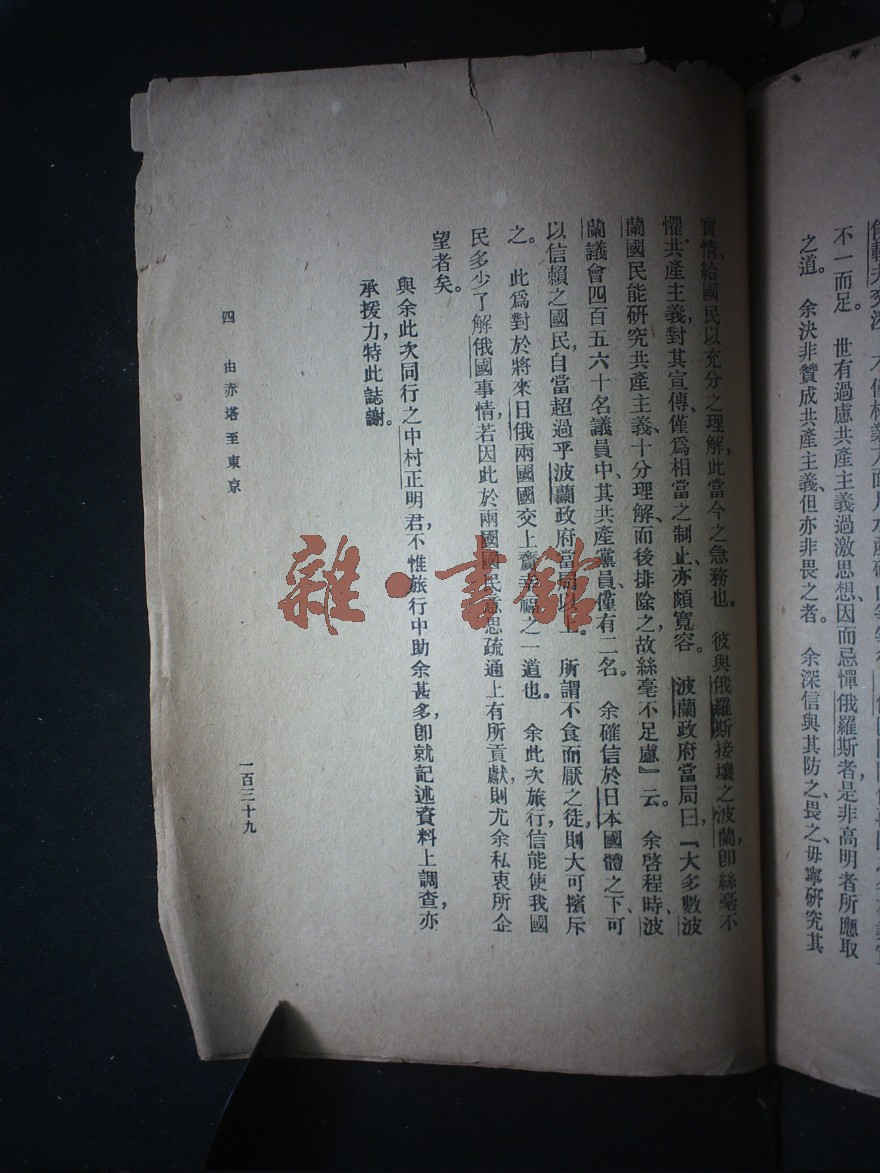 不一而足。世有過慮共產主義過激思想、因而忌憚俄羅斯者、是非高明者所應取
之道。余決非贊成共產主義、但亦非畏之者。余深信與其防之、畏之、毋寧研究其
實情、給國民以充分之理解、此當今之急務也。彼與俄羅斯接壤之波蘭、卽絲毫不
懼共產主義、對其宣傳、僅爲相當之制止、亦頗寬容。波蘭政府當局曰『大多數波
蘭國民能研究共產主義、十分理解、而後排除之、故絲毫不足慮』云。余啓程時、波
蘭議會四百五六十名議員中、其共產黨員、僅有二名。余確信於日本國體之下、可
以信賴之國民、自當超過乎波蘭政府當局以上。所謂不食而厭之徒、則大可擯斥
之。此爲對於將來日俄兩國國交上齎幸福之一道也。余此次旅行、信能使我國
民多少了解俄國事情、若因此於兩國國民意思疏通上有所貢獻、則尤余私衷所企
望者矣。
與余此次同行之中村正明君、不惟旅行中助余甚多、卽就記述資料上調查、亦
承援力、特此誌謝。
四 由赤塔至東京
一百三十九
雜·書館